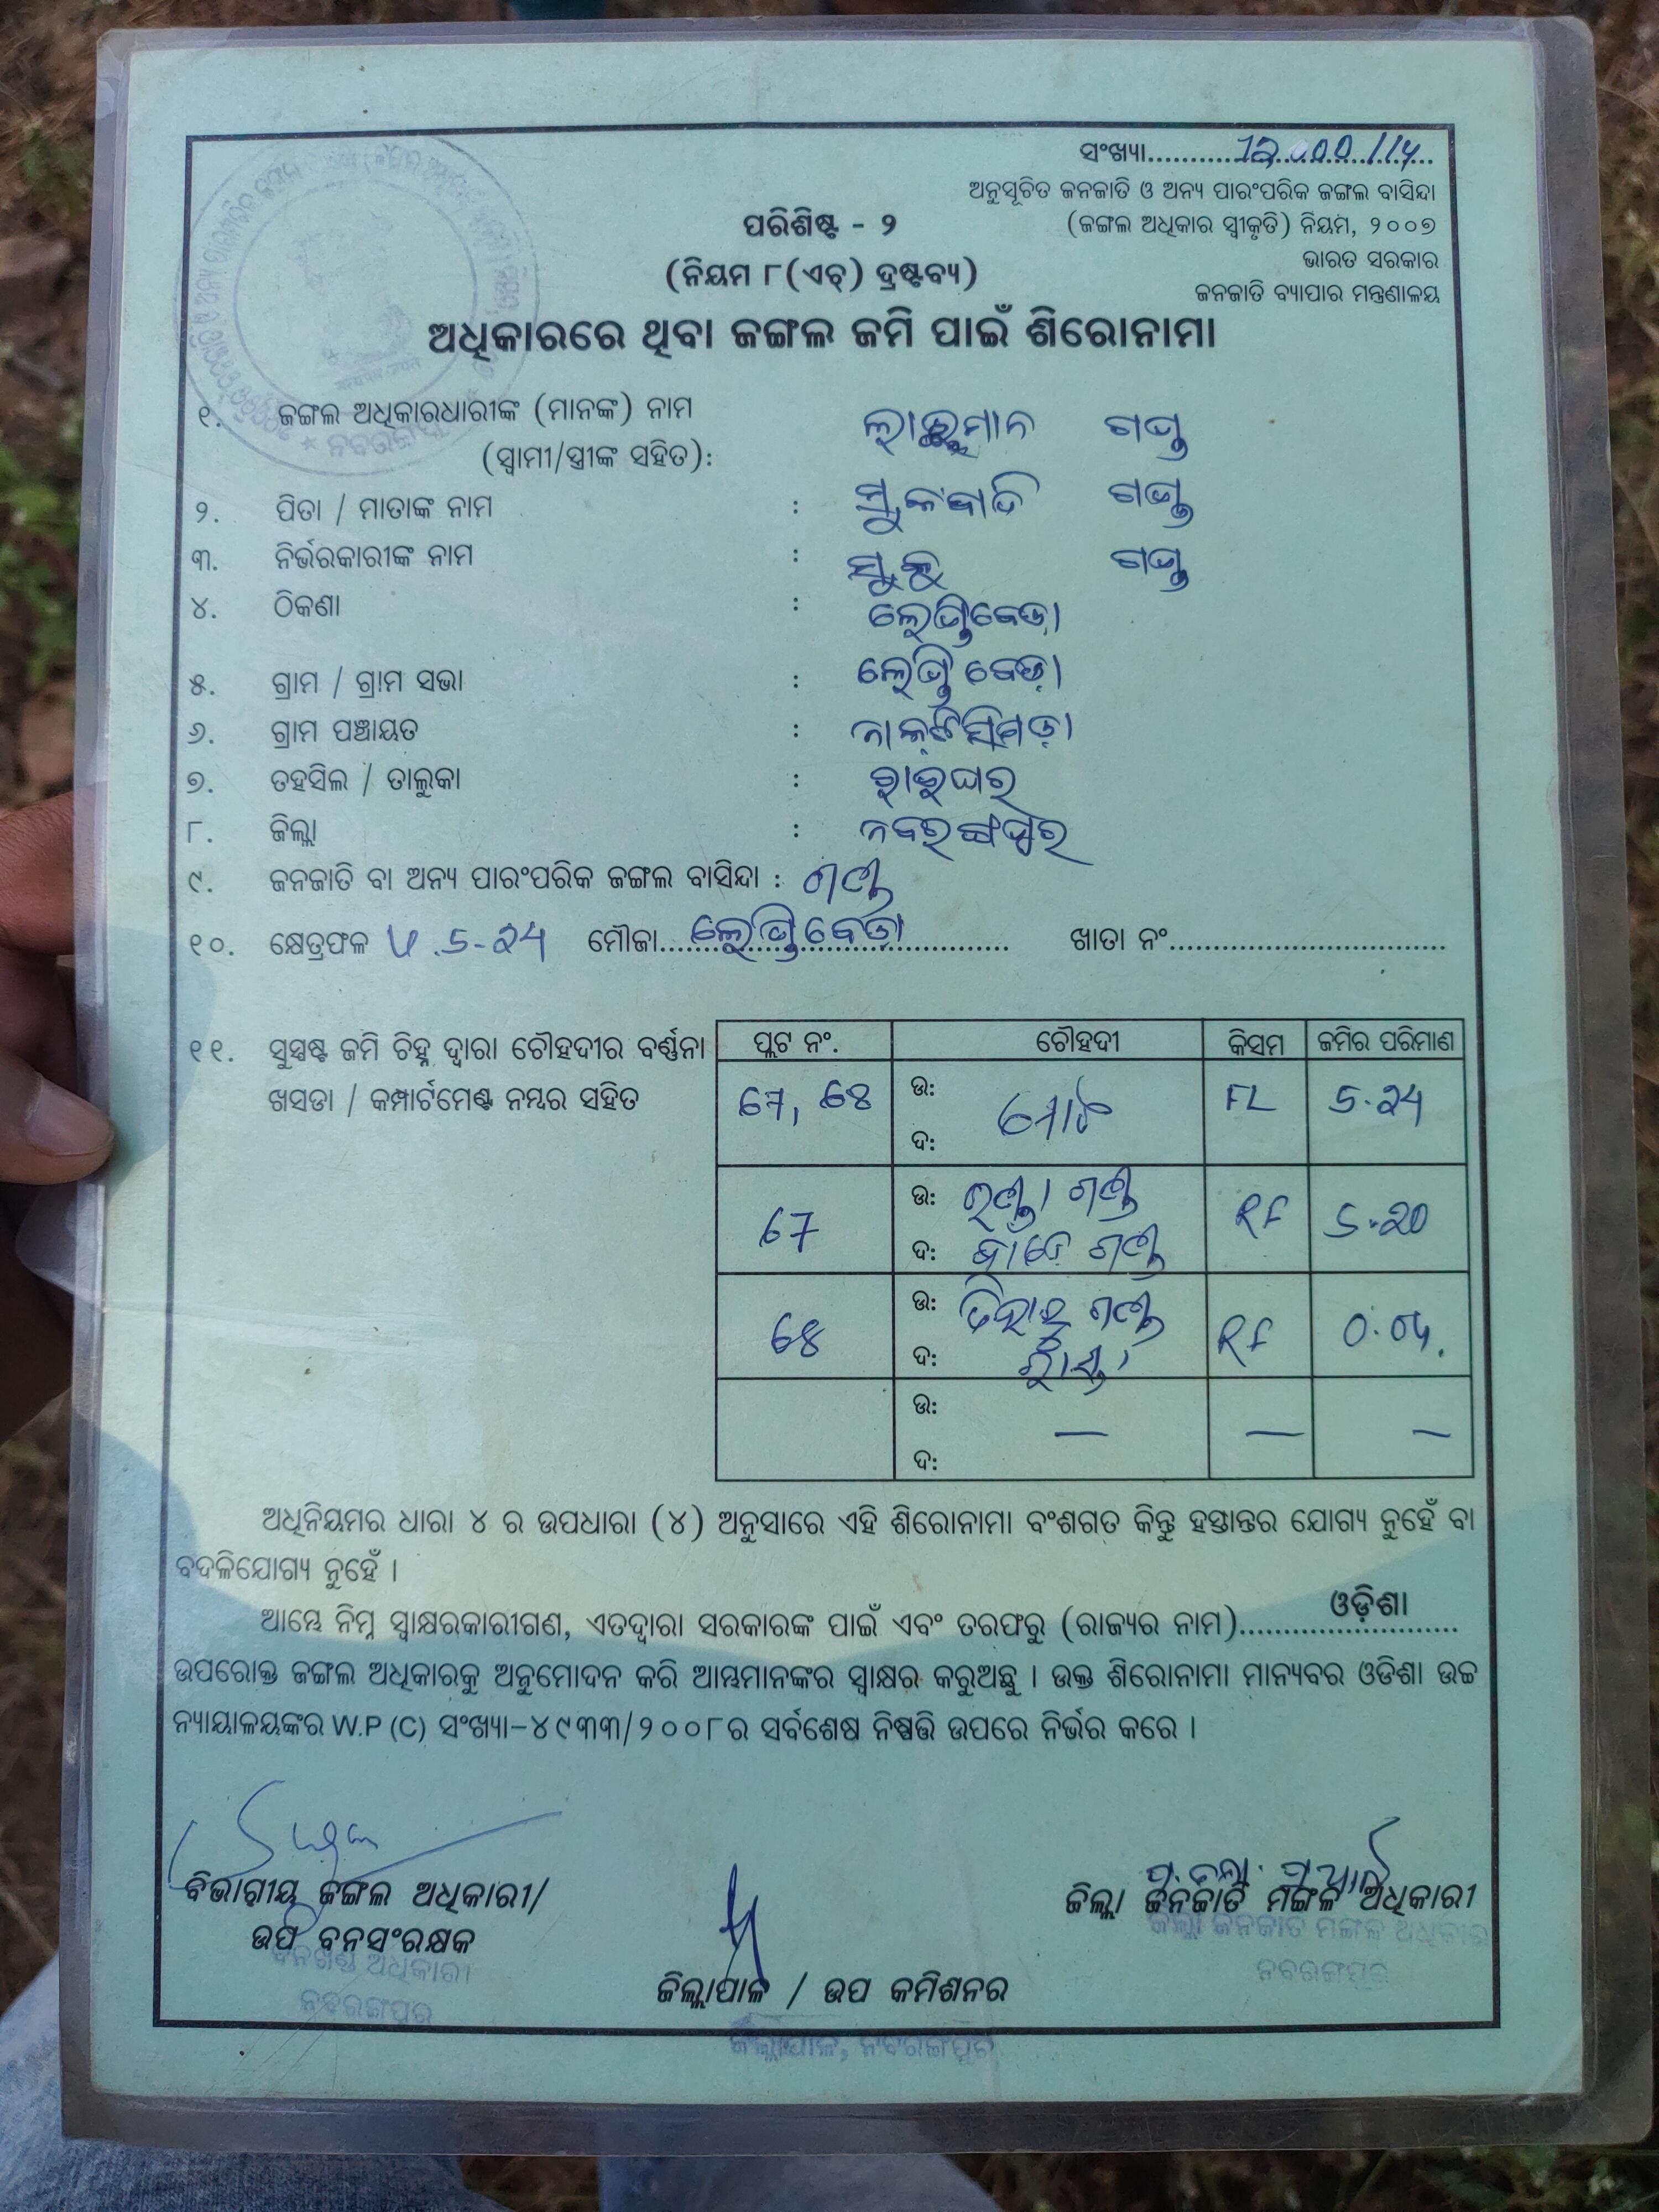 ସଂଖ୍ୟା
ଅନୁସୂଚିତ ଜନଜାତି ଓ ଅନ୍ୟ ପାରଂପରିକ ଜଙ୍ଗଲ ବାସିନ୍ଦା
(ଜଙ୍ଗଲ ଅଧିକାର ସ୍ଵୀକୃତି) ନିୟମ, ୨୦୦୭
ଭାରତ ସରକାର
ଜନଜାତି ବ୍ୟାପାର ମନ୍ତ୍ରଣାଳୟ
ପରିଶିଷ୍ଟ - ୨
(ନିୟମ ୮(ଏଚ୍) ଦ୍ରଷ୍ଟବ୍ୟ)
ଅଧିକାରରେ ଥିବା ଜଙ୍ଗଲ ଜମି ପାଇଁ ଶିରୋନାମା
୧. ଜଙ୍ଗଲ ଅଧିକାରଧାରୀଙ୍କ (ମାନଙ୍କ) ନାମ ଗଣ୍ଡ
(ସ୍ୱାମୀ/ସ୍ତ୍ରୀଙ୍କ ସହିତ):
୨. ପିତା / ମାତାଙ୍କ ନାମ : ଗଣ୍ଡ
୩. ନିର୍ଭରକାରୀଙ୍କ ନାମ : ଗଣ୍ଡ
୪. ଠିକଣା :
୫. ଗ୍ରାମ / ଗ୍ରାମ ସଭା :
୬. ଗ୍ରାମ ପଞ୍ଚାୟତ :
୭. ତହସିଲ / ତାଲୁକା : ରାଇଘର
୮. ଜିଲ୍ଲା : ନବରଙ୍ଗପୁର
୯. ଜନଜାତି ବା ଅନ୍ୟ ପାରଂପରିକ ଜଙ୍ଗଲ ବାସିନ୍ଦା : ଗଣ୍ଡ
୧୦. କ୍ଷେତ୍ରଫଳ 5-24 ମୌଜା ଖାତା ନଂ
୧୧. ସୁସ୍ପଷ୍ଟ ଜମି ଚିହ୍ନ ଦ୍ୱାରା ଚୌହଦୀର ବର୍ଣ୍ଣନା
ଖସଡା / କମ୍ପାର୍ଟମେଣ୍ଟ ନମ୍ବର ସହିତ
ପ୍ଲଟ ନଂ. ଚୌହଦୀ କିସମ ଜମିର ପରିମାଣ
67, 68 ଉ: ମୋଟ FL 5.24
ଦ:
67 ଉ: ଗଣ୍ଡ RF 5.20
ଦ: ଗଣ୍ଡ
68 ଉ: ଗଣ୍ଡ RF 0.04
ଦ: ରାସ୍ତା
ଉ: — — —
ଦ:
ଅଧିନିୟମର ଧାରା ୪ ର ଉପଧାରା (୪) ଅନୁସାରେ ଏହି ଶିରୋନାମା ବଂଶଗତ କିନ୍ତୁ ହସ୍ତାନ୍ତର ଯୋଗ୍ୟ ନୁହେଁ ବା
ବଦଳିଯୋଗ୍ୟ ନୁହେଁ ।
ଆମ୍ଭେ ନିମ୍ନ ସ୍ୱାକ୍ଷରକାରୀଗଣ, ଏତଦ୍ୱାରା ସରକାରଙ୍କ ପାଇଁ ଏବଂ ତରଫରୁ (ରାଜ୍ୟର ନାମ) ଓଡ଼ିଶା
ଉପରୋକ୍ତ ଜଙ୍ଗଲ ଅଧିକାରକୁ ଅନୁମୋଦନ କରି ଆମ୍ଭମାନଙ୍କର ସ୍ୱାକ୍ଷର କରୁଅଛୁ । ଉକ୍ତ ଶିରୋନାମା ମାନ୍ୟବର ଓଡିଶା ଉଚ୍ଚ
ନ୍ୟାୟାଳୟଙ୍କର W.P (C) ସଂଖ୍ୟା-୪୯୩୩/୨୦୦୮ର ସର୍ବଶେଷ ନିଷ୍ପତ୍ତି ଉପରେ ନିର୍ଭର କରେ ।
ବିଭାଗୀୟ ଜଙ୍ଗଲ ଅଧିକାରୀ/
ଉପ ବନସଂରକ୍ଷକ
ବନଖଣ୍ଡ ଅଧିକାରୀ
ନବରଙ୍ଗପୁର
ଜିଲ୍ଲାପାଳ / ଉପ କମିଶନର
ଜିଲ୍ଲାପାଳ, ନବରଙ୍ଗପୁର
ଜିଲ୍ଲା ଜନଜାତି ମଙ୍ଗଳ ଅଧିକାରୀ
ଜିଲ୍ଲା ଜନଜାତି ମଙ୍ଗଳ ଅଧିକାରୀ
ନବରଙ୍ଗପୁର